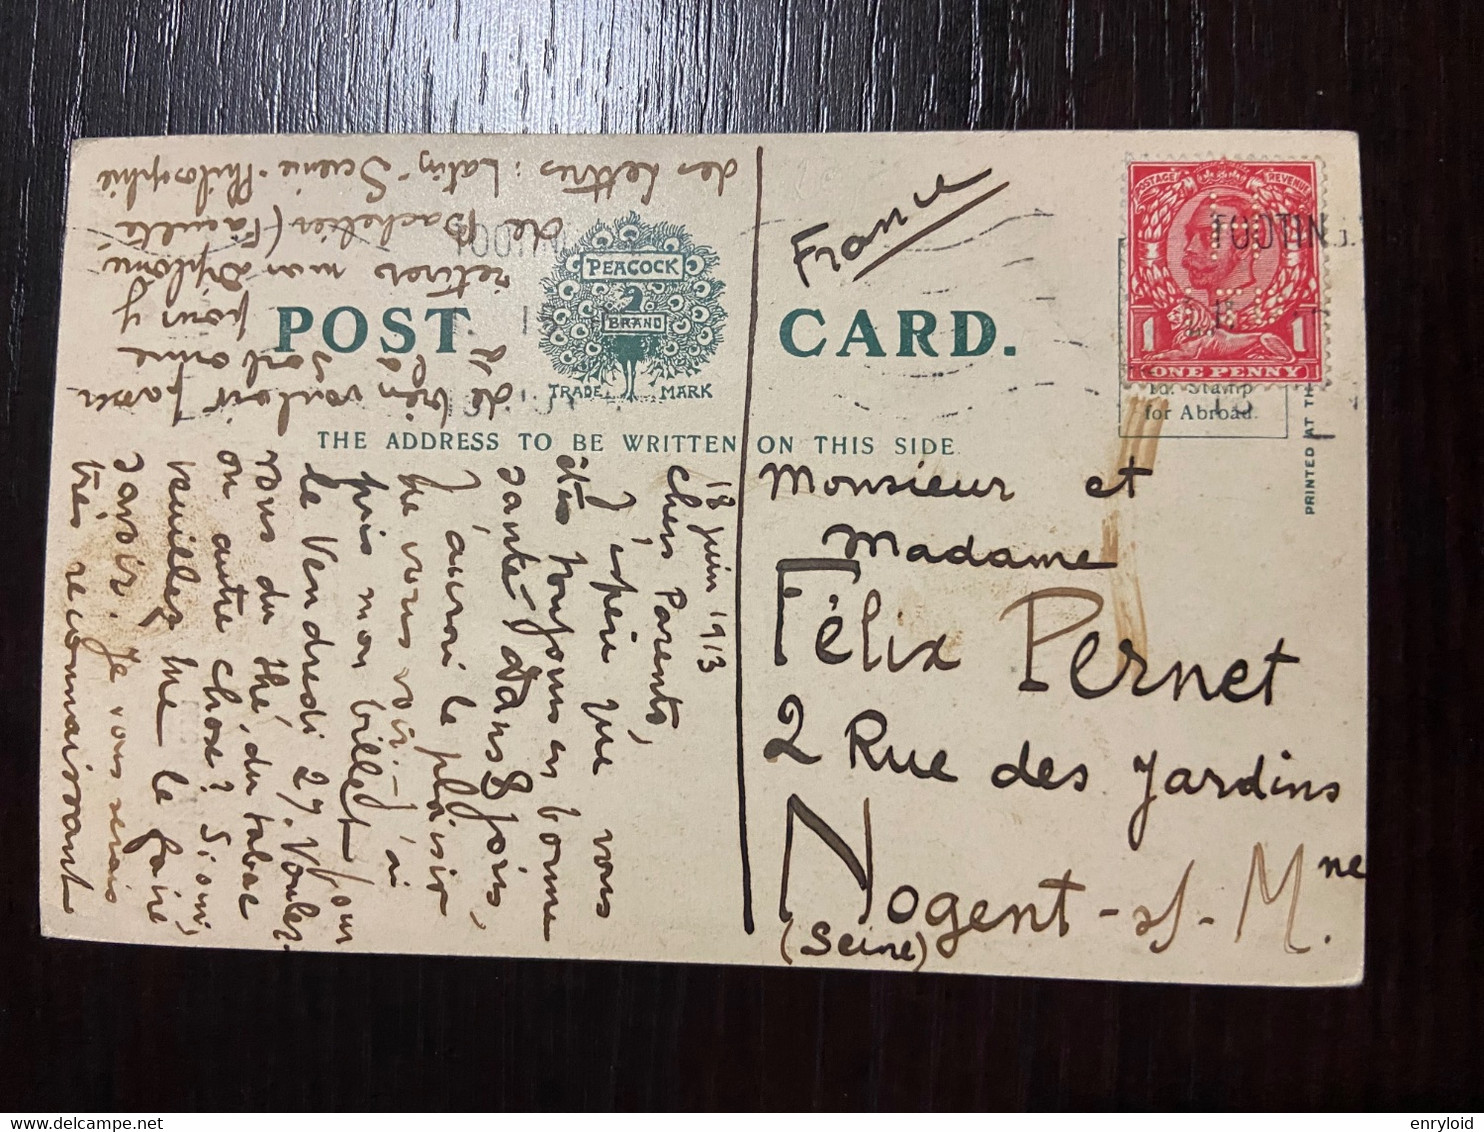 France
TOOTING.
TOOTING
POSTAGE REVENUE
1 1
ONE PENNY
POST CARD.
PEACOCK
BRAND
TRADE MARK
THE ADDRESS TO BE WRITTEN ON THIS SIDE.
Stamp
for Abroad.
PRINTED AT TH
Monsieur et
Madame
Félix Pernet
2 Rue des Jardins
Nogent-s/-Mne.
(Seine)
18 juin 1913
Chers Parents,
J'espère que vous
êtes toujours en bonne
santé. Dans 8 jours,
J'aurai le plaisir
de vous voir. J'ai
pris mon billet pour
le Vendredi 27. Voulez
vous du thé, du tabac
ou autre chose? Si oui,
veuillez me le faire
savoir. Je vous serais
très reconnaissant
de bien vouloir passer
à la Sorbonne
pour y
retirer mon diplôme
de Bachelier (Faculté
des Lettres: Latin-Science-Philosophie
enryloid